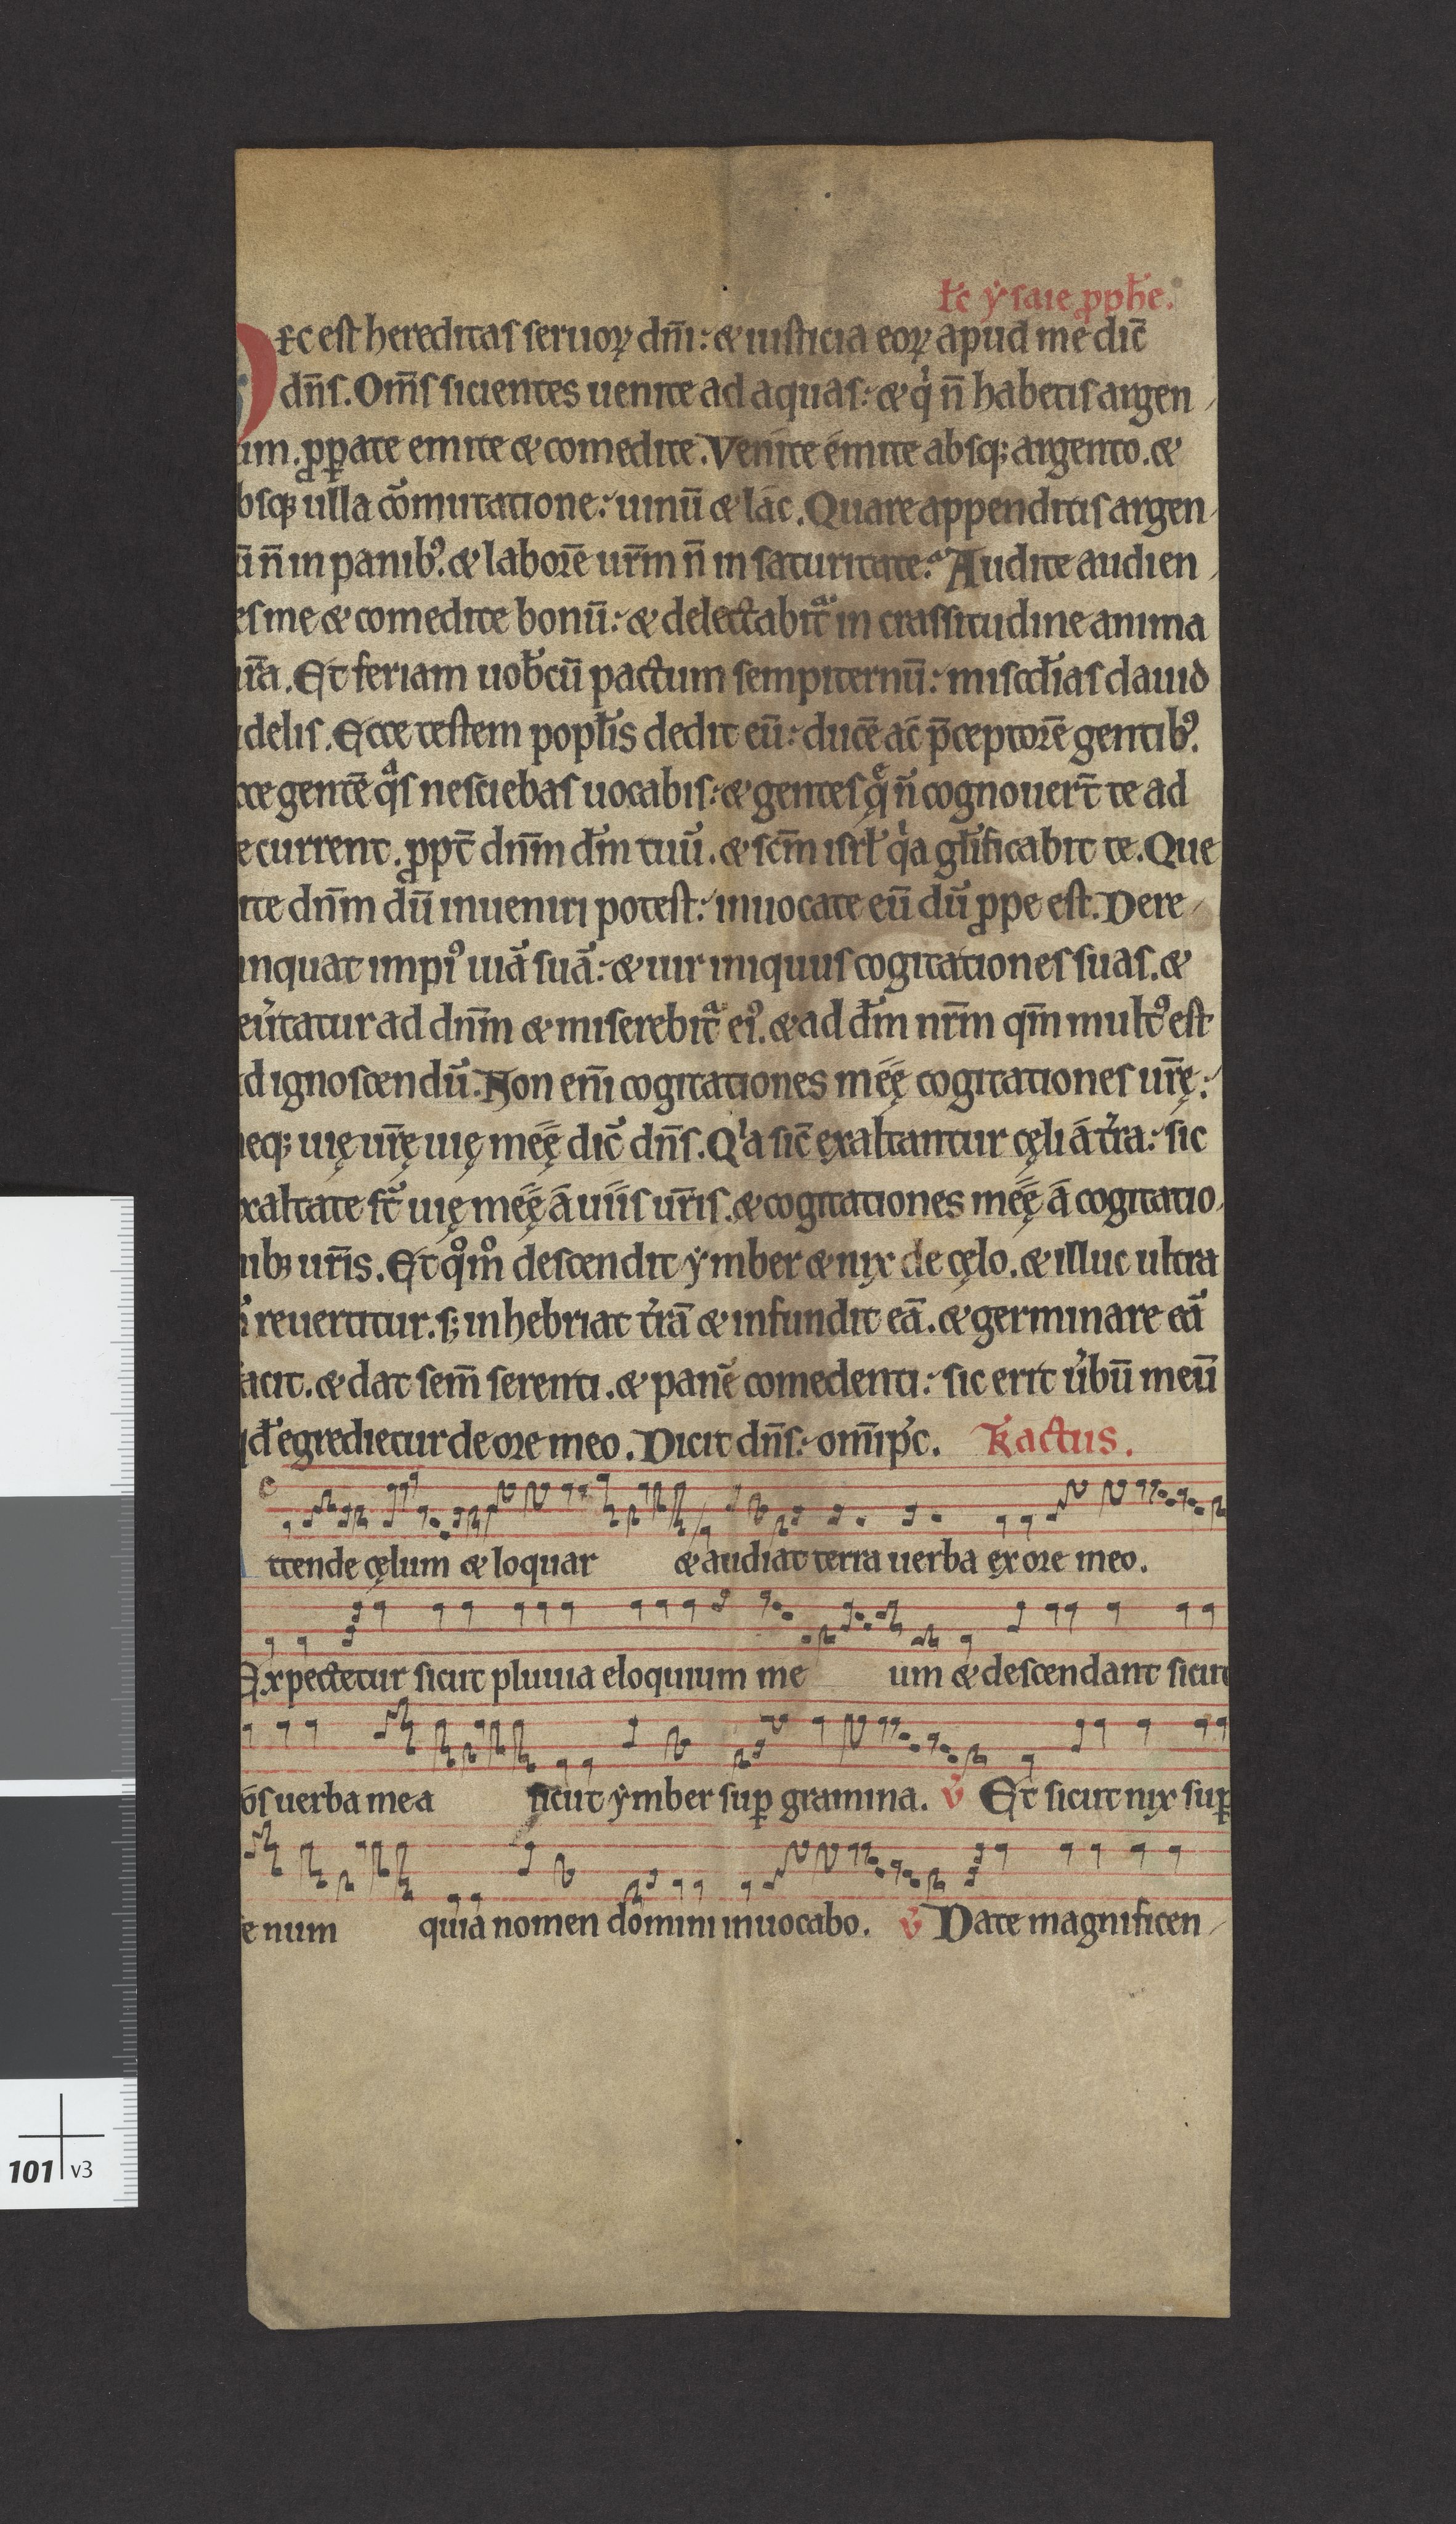 łc ẏsaie ꝓph̄e.
ęc est hereditas seruoꝝ dn̄i: & iusticia eoꝝ apud me dic̄
dn̄s. Om̄s sicientes uenite ad aquas: & qͥ n̄ habetis argen
um. ꝓꝑate emite & comedite. Venite émite absq; argento. &
bsq; ulla cōmutatione: uinū & lác. Quare appenditis argen
ū n̄ in panibꝰ. & laborē ur̄m n̄ in saturitate? Audite audien
es me & comedite bonū: & delectabit᷑ in crassitudine anima
ur̄a. Et feriam uob̄cū pactum sempiternū: misc̄dias dauid
idelis. Ecce testem popl̄is dedit eū: ducē ac̄ p̄ceptorē gentibꝰ.
cce gentē qͣs nesciebas uocabis: & gentes qͤ n̄ cognouer̄t te ad
e current. ꝓpt̄ dn̄m d̄m tuū. & sc̄m isrl̄ qͥa gl̄ificabit te. Que
rite dn̄m dū inueniri potest: inuocate eū dū ꝓpe est. Dere
inquat impiꝰ uiā suā: & uir iniquus cogitationes suas. &
eu͛tatur ad dn̄m & miserebit᷑ eiꝰ. & ad d̄m nr̄m qm̄ multꝰ est
d ignoscendū. Non en̄i cogitationes méę cogitationes ur̄ę:
neq; uię ur̄ę uię méę dic̄ dn̄s. Qͥa sic̄ exaltantur cęli á t͛ra: sic
xaltate st̄ uię méę á uiis ur̄is. & cogitationes méę á cogitatio
nib; ur̄is. Et qͦmͦ descendit ẏmber & nix de cęlo. & illuc ultra
n̄ reuertitur. s; inhebriat t͛rā & infundit eā. & germinare eā
acit. & dat sem̄ serenti. & panē comedenti: sic erit u͛bū meū
qd̄ egredietur de ore meo. Dicit dn̄s: omīp̄c. Tͣactus.
ttende cęlum & loquar & audiat terra uerba ex ore meo.
Expectetur sicut pluuia eloquium me um & descendant sicut
os uerba mea sicut ẏmber suꝑ gramina. v̄ Et sicut nix suꝑ
e num quia nomen domini inuocabo. v̄ Date magnificen
101 v3